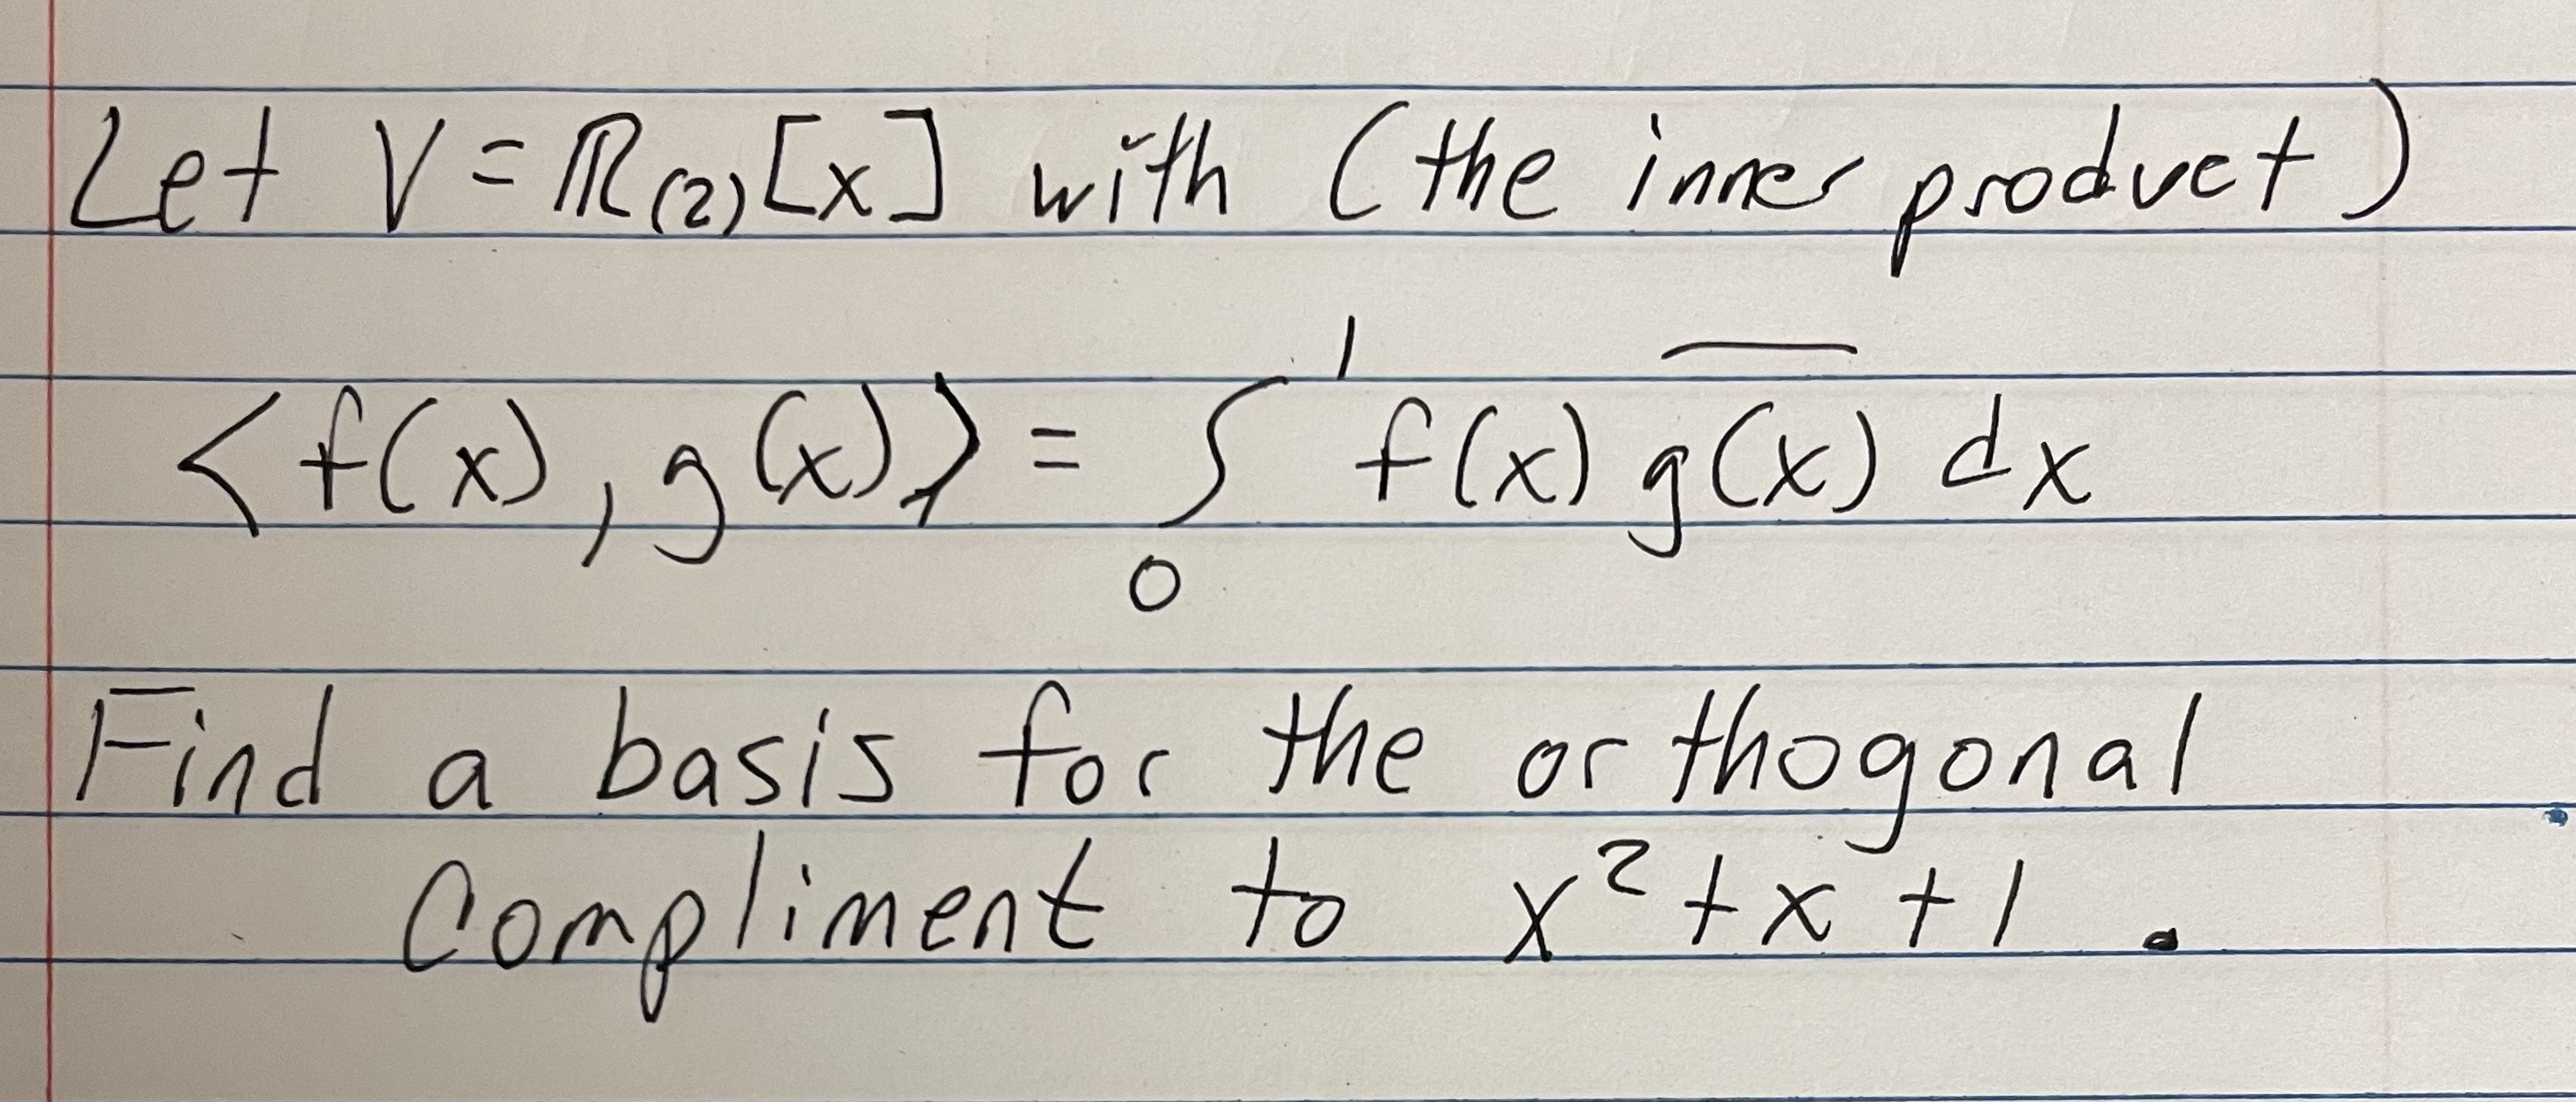 Let V = ℝ₍₂₎[x] with (the inner product)
1
⟨f(x), g(x)⟩ = ∫ f(x) g̅(̅x̅)̅ dx
0
Find a basis for the orthogonal
compliment to x² + x + 1 .